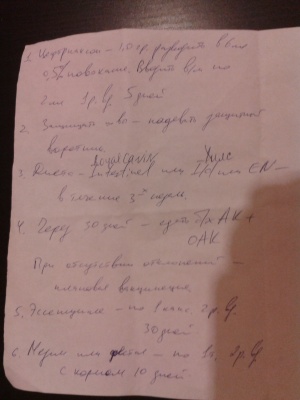 1. Цефтриаксон – 1,0 гр. разводить в 6 мл
0,5% новокаина. Вводить в/м по
2 мл 1 р. д. 5 дней
2. Защищать шов – надевать защитный
воротник.
3. Диета – Intestinal или I/d или EN –
Хилс
в течение 3х недель.
4. Через 30 дней – сдать Б/х АК +
ОАК
При отсутствии отклонений –
плановая вакцинация.
5. Эссенциале – по 1 капс. 2 р. д.
30 дней
6. Мезим или – по 1т. 2р. д.
с кормом 10 дней